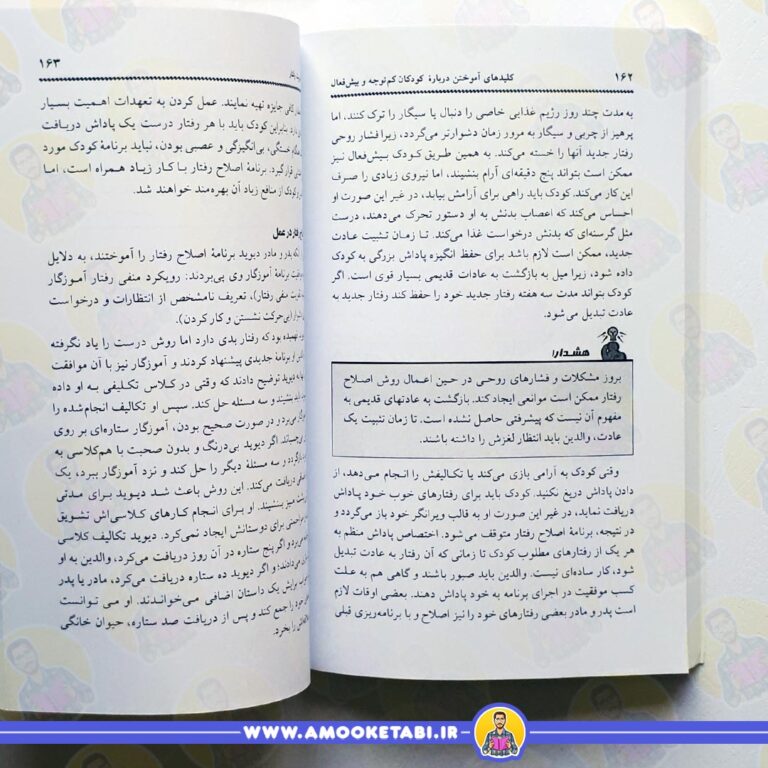 ۱۶۲
کلیدهای آموختن دربارهٔ کودکان کم‌توجه و بیش‌فعال
به مدت چند روز رژیم غذایی خاصی را دنبال یا سیگار را ترک کنند، اما
پرهیز از چربی و سیگار به مرور زمان دشوارتر می‌گردد، زیرا فشار روحی
رفتار جدید آنها را خسته می‌کند. به همین طریق کودک بیش‌فعال نیز
ممکن است بتواند پنج دقیقه‌ای آرام بنشیند، اما نیروی زیادی را صرف
این کار می‌کند. کودک باید راهی برای آرامش بیابد، در غیر این صورت او
احساس می‌کند که اعصاب بدنش به او دستور تحرک می‌دهند، درست
مثل گرسنه‌ای که بدنش درخواست غذا می‌کند. تا زمان تثبیت عادت
جدید، ممکن است لازم باشد برای حفظ انگیزه پاداش بزرگی به کودک
داده شود، زیرا میل به بازگشت به عادات قدیمی بسیار قوی است. اگر
کودک بتواند مدت سه هفته رفتار جدید خود را حفظ کند رفتار جدید به
عادت تبدیل می‌شود.
هشدار!
بروز مشکلات و فشارهای روحی در حین اعمال روش اصلاح
رفتار ممکن است موانعی ایجاد کند. بازگشت به عادتهای قدیمی به
مفهوم آن نیست که پیشرفتی حاصل نشده است. تا زمان تثبیت یک
عادت، والدین باید انتظار لغزش را داشته باشند.
وقتی کودک به آرامی بازی می‌کند یا تکالیفش را انجام می‌دهد، از
دادن پاداش دریغ نکنید. کودک باید برای رفتارهای خوب خود پاداش
دریافت نماید، در غیر این صورت او به قالب ویرانگر خود باز می‌گردد و
در نتیجه، برنامهٔ اصلاح رفتار متوقف می‌شود. اختصاص پاداش منظم به
هر یک از رفتارهای مطلوب کودک تا زمانی که آن رفتار به عادت تبدیل
شود، کار ساده‌ای نیست. والدین باید صبور باشند و گاهی هم به علت
کسب موفقیت در اجرای برنامه به خود پاداش دهند. بعضی اوقات لازم
است پدر و مادر بعضی رفتارهای خود را نیز اصلاح و با برنامه‌ریزی قبلی
۱۶۳
کافی جایزه تهیه نمایند. عمل کردن به تعهدات اهمیت بسیار
دارد. بنابراین کودک باید با هر رفتار درست یک پاداش دریافت
خستگی، بی‌انگیزگی و عصبی بودن، نباید برنامهٔ کودک مورد
قرار گیرد. برنامهٔ اصلاح رفتار با کار زیاد همراه است، اما
کودک از منافع زیاد آن بهره‌مند خواهند شد.
در عمل
پدر و مادر دیوید برنامهٔ اصلاح رفتار را آموختند، به دلایل
برنامهٔ آموزگار وی پی‌بردند: رویکرد منفی رفتار آموزگار
منفی رفتار)، تعریف نامشخص از انتظارات و درخواست
(بی‌حرکت نشستن و کار کردن).
فهمیده بود که رفتار بدی دارد اما روش درست را یاد نگرفته
او برنامهٔ جدیدی پیشنهاد کردند و آموزگار نیز با آن موافقت
به دیوید توضیح دادند که وقتی در کلاس تکلیفی به او داده
باید بنشیند و سه مسئله حل کند. سپس او تکالیف انجام‌شده را
می‌برد و در صورت صحیح بودن، آموزگار ستاره‌ای بر روی
اگر دیوید بی‌درنگ و بدون صحبت با هم‌کلاسی به
و سه مسئلهٔ دیگر را حل کند و نزد آموزگار ببرد، یک
دریافت می‌کند. این روش باعث شد دیوید برای مدتی
میز بنشیند. او برای انجام کارهای کلاسی‌اش تشویق
برای دوستانش ایجاد نمی‌کرد. دیوید تکالیف کلاسی
و اگر پنج ستاره در آن روز دریافت می‌کرد، والدین به او
می‌دادند؛ و اگر دیوید ده ستاره دریافت می‌کرد، مادر یا پدر
برایش یک داستان اضافی می‌خواندند. او می توانست
را جمع کند و پس از دریافت صد ستاره، حیوان خانگی
را بخرد.
WWW.AMOOKETABI.IR